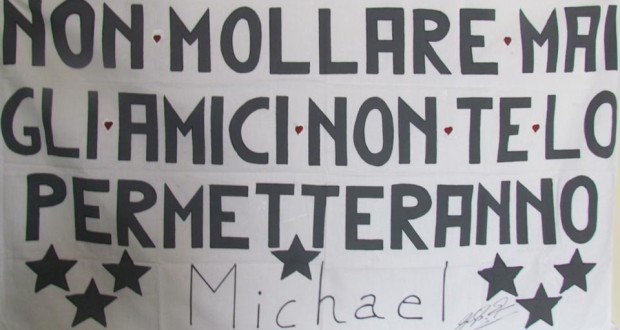 NON MOLLARE MAI
GLI AMICI NON TE LO
PERMETTERANNO
Michael